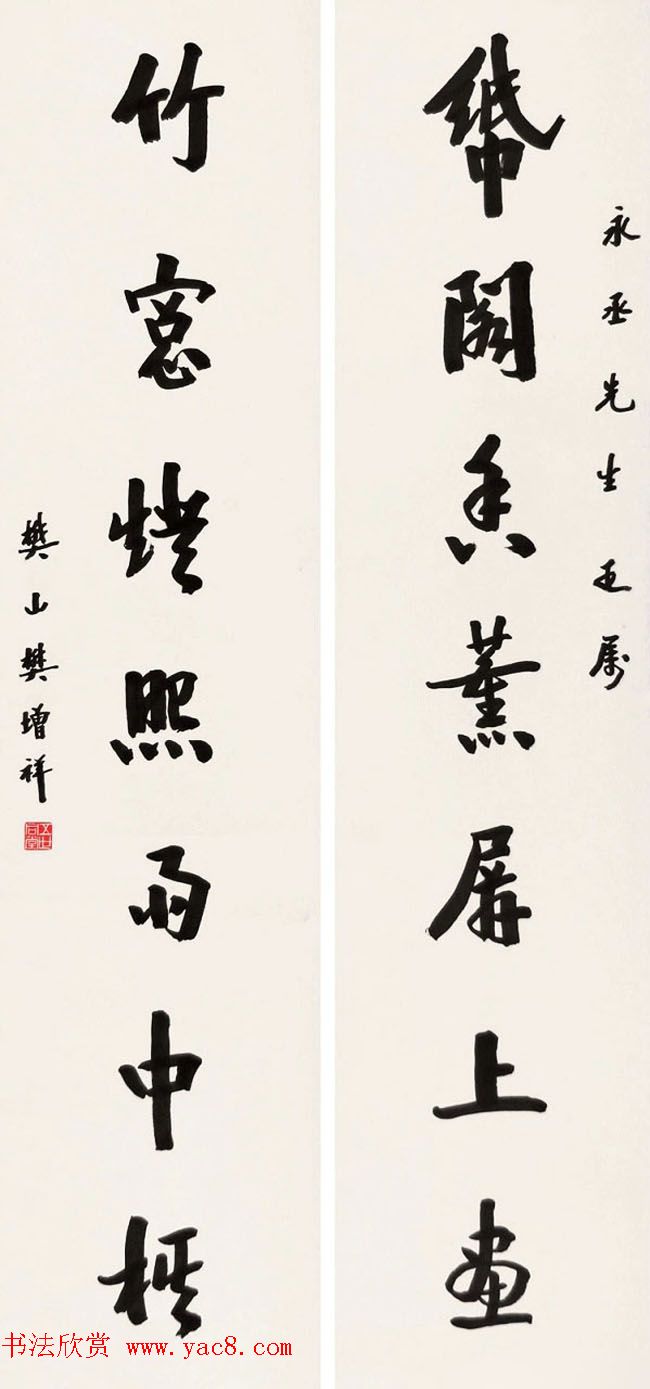 永丞先生正屬
紙閣香薰屏上畫
竹窓燈照雨中棋
樊山樊增祥
五世同堂
书法欣赏 www.yac8.com